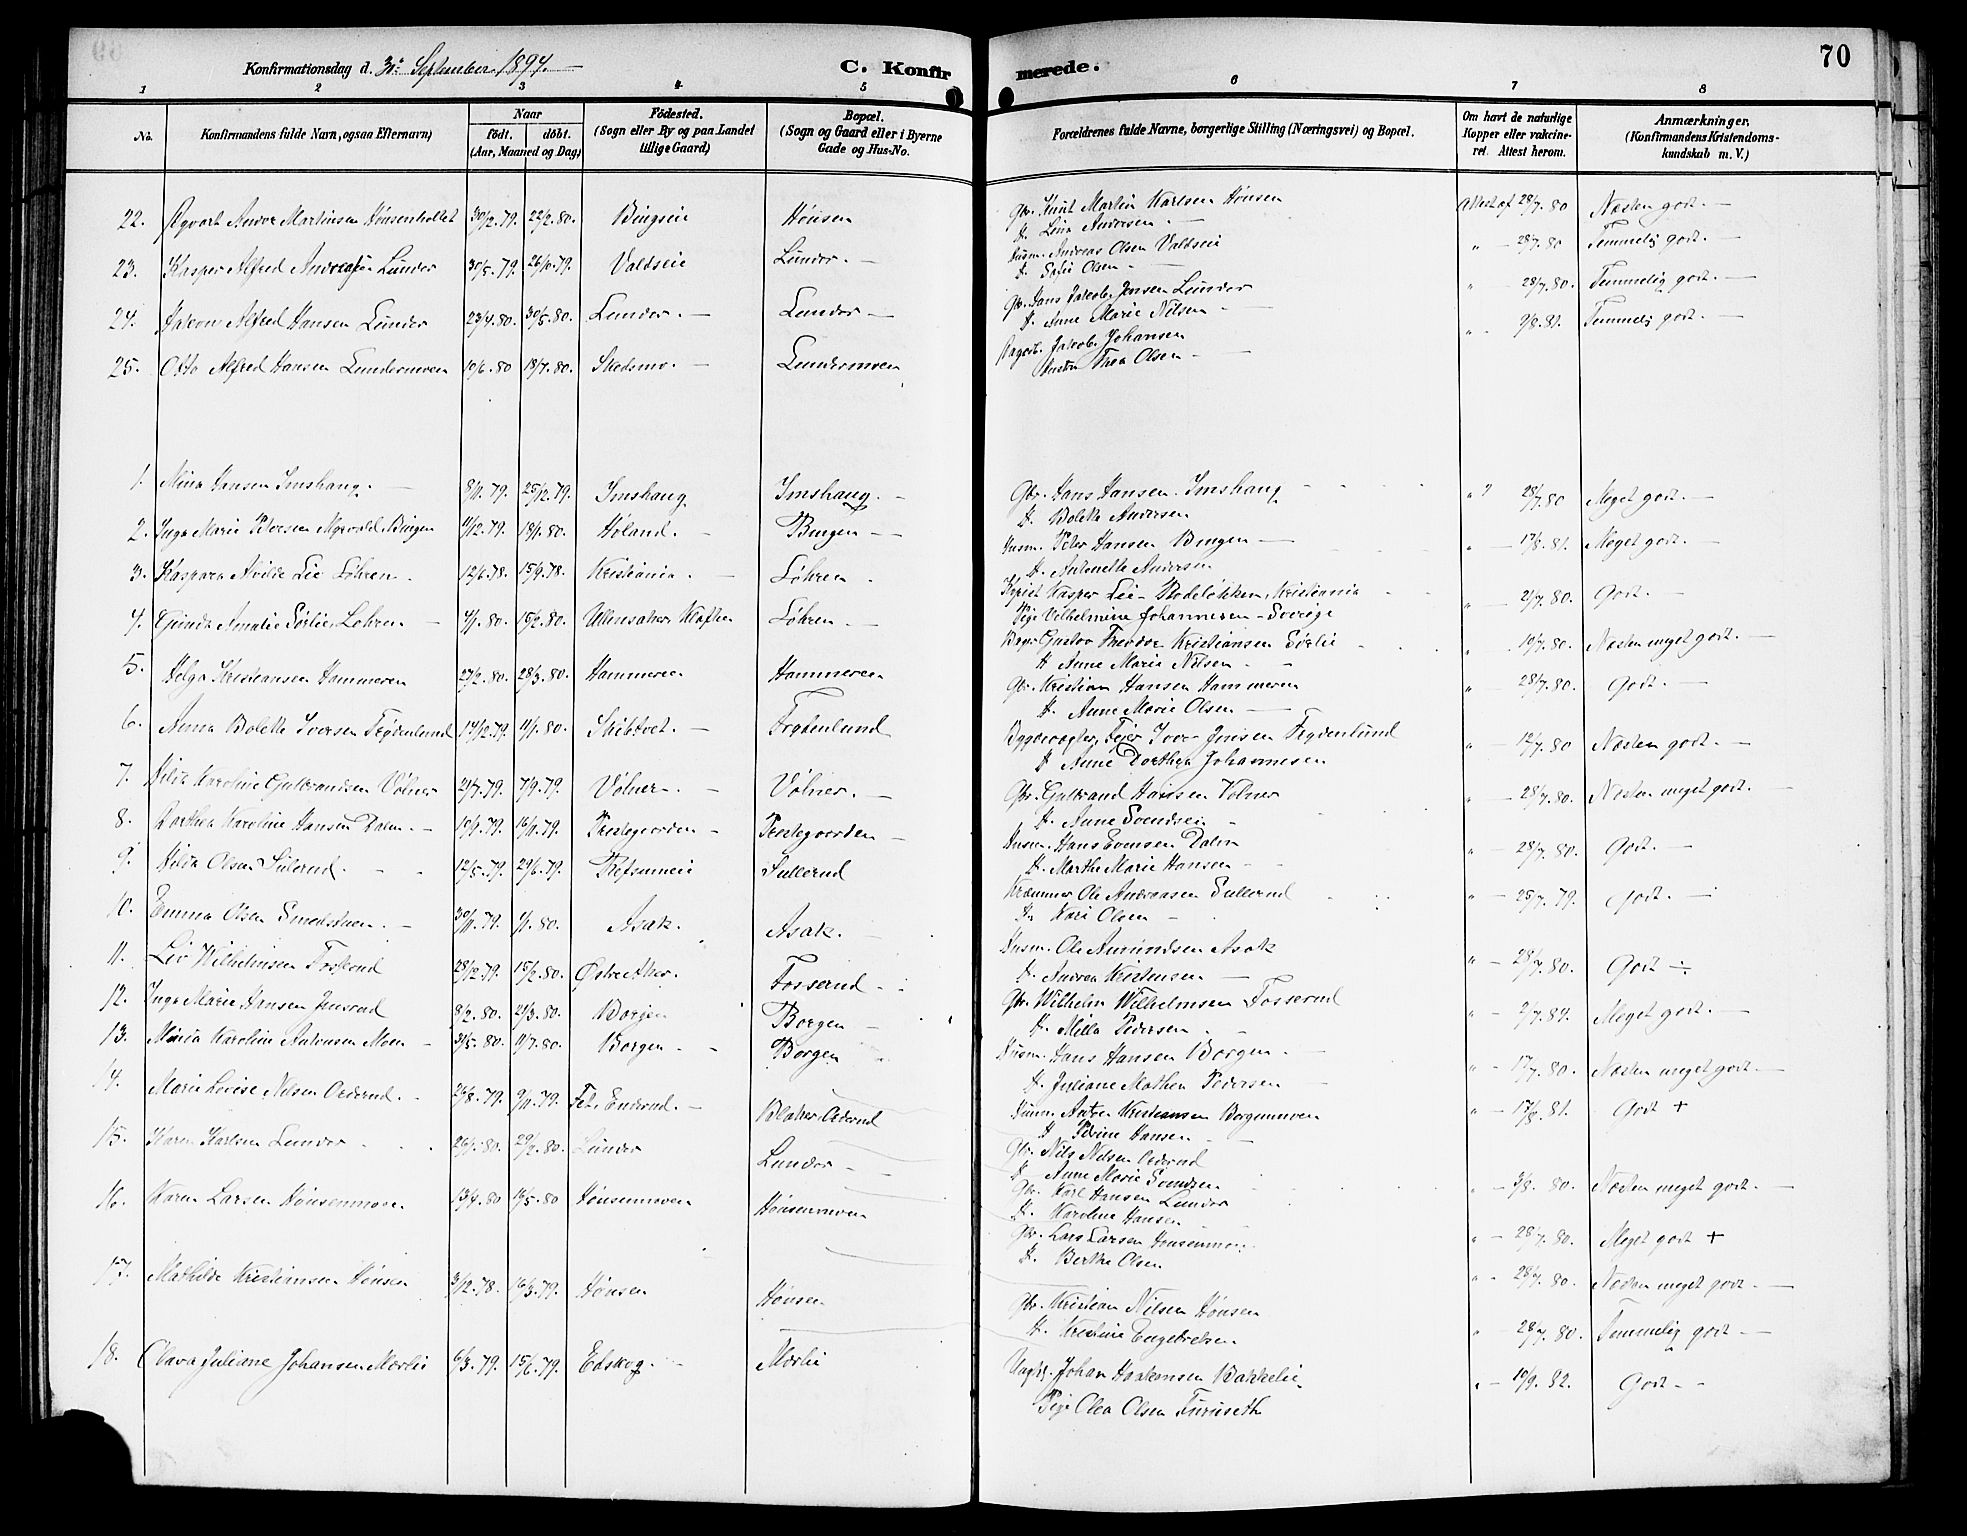 70
Konfirmationsdag d. 30. September 1894.
C. Konfirmerede.
1 2 3 4 5 6 7 8
No.
Konfirmandens fulde Navn, ogsaa Efternavn)
Naar
födt. döbt.
(Aar, Maaned og Dag)
Födested.
(Sogn eller By og paa Landet
tillige Gaard)
Bopæl.
(Sogn og Gaard eller i Byerne
Gade og Hus-No.
Forældrenes fulde Navne, borgerlige Stilling (Næringsvei) og Bopæl.
Om havt de naturlige
Kopper eller vakcine-
ret. Attest herom.
Anmærkninger.
(Konfirmandens Kristendoms-
kundskab m. V.)
22. Agvart Andor Martinsen Hönsenhollet 30/12.79. 22/2.80. Bingseie Hönsen Gbr. Knut Martin Karlsen Hönsen Attest af 28/7.80 Næsten godt.
H. Lina Andersen
23. Kasper Alfred Andreasen Lunder 30/5.79. 26/10.79. Valdseie Lunder. Husm. Andreas Olsen Valdseie " 28/7.80 Temmelig godt.
H. Sofie Olsen
24. Hakon Alfred Hansen Lunder 23/4.80. 30/5.80. Lunder. Lunder Gbr. Hans Jakob Jensen Lunder " 28/7.80. Temmelig godt.
H. Anne Marie Nilsen
25. Otto Alfred Hansen Lundermoen 10/6.80 18/7.80. Skedsmo. Lundermoen Jakob Johansen " 9/8.81. Temmelig godt.
Hustru Thea Olsen
1. Mina Hansen Imshaug. 8/11.79. 25/12.79. Imshaug Imshaug. Gbr. Hans Hansen Imshaug " 28/7.80 Meget godt.
H. Bolette Andersen
2. Inga Marie Petersen Nyvold Bingen 11/12.79. 18/1.80. Höland. Bingen Husm. Peter Hansen Bingen " 17/8.81. Meget godt.
H. Antonette Andersen
3. Kaspara Alvilde Lie Löhren. 12/6.78. 15/9.78. Kristiania. Löhren. Kasper Lie Rodelökken, Kristiania " 21/7.80. Godt.
Pige Vilhelmine Johannesen Sverige
4. Gunda Amalie Sörlie Löhren. 4/1.80. 15/2.80. Ullensaker Kloften Löhren Gustav Theodor Kristiansen Sörlie " 10/7.80. Næsten meget godt.
H. Anne Marie Nilsen
5. Helga Kristiansen Hammeren 27/2.80. 28/3.80. Hammeren Hammeren Gbr. Kristian Hansen Hammeren " 28/7.80. Godt.
H. Anne Marie Olsen
6. Anna Bolette Iversen Frydenlund 14/12.79. 11/1.80. Skibtvet. Frydenlund Iver Jensen Frydenlund " 12/7.80 Næsten godt.
H. Anne Dorthea Johannesen
7. Hilda Karoline Gulbrandsen Völner 21/7.79. 7/9.79. Völner. Völner. Gbr. Gulbrand Hansen Völner " 28/7.80. Næsten meget godt.
H. Anne Svendsen
8. Dorthea Karoline Hansen Dalen. 10/9.79. 16/11.79. Prestegaarden Prestegaarden Husm. Hans Evensen Dalen " 28/7.80. Godt.
H. Marthe Marie Hansen
9. Hilda Olsen Sulerud. 12/5.79. 29/6.79. Refsumeie Sullerud Kræmmer Ole Andreasen Sullerud " 25/7.79. Godt.
H. Kari Olsen
10. Emma Olsen Smedstuen. 30/11.79. 1/1.80. Asak. Asak. Husm. Ole Amundsen Asak " 28/7.80. Godt
H. Andrea Kristensen
11. Liv Wilhelmsen Fosserud 28/12.79. 15/2.80. Østre Aker. Fosserud Gbr. Wilhelm Wilhelmsen Fosserud " 2/7.84. Meget godt.
H. Milla Pedersen
12. Inga Marie Hansen Jensrud 8/2.80. 21/3.80. Borgen Borgen Husm. Hans Hansen Borgen. " 17/7.80. Næsten meget godt.
H. Juliane Mathea Pedersen
13. Maria Karoline Antonsen Moen 31/5.80. 11/7.80. Borgen. Borgen Husm. Anton Kristiansen Borgenmoen " 17/8.81. Godt +
H. Petrine Hansen
14. Marie Lovise Nilsen Oederud. 26/8.79. 9/11.79. Fet, Enderud. Blaker Oederud Gbr. Nils Nilsen Oederud " 3/8.80. Næsten meget godt.
H. Anne Marie Svendsen
15. Karen Karlsen Lunder 26/1.80. 29/2.80. Lunder Lunder Gbr. Karl Hansen Lunder " 28/7.80. Meget godt +
H. Karoline Hansen
16. Karen Larsen Hönsenmoen 13/4.80 16/5.80 Hönsenmoen Hönsenmoen Gbr. Lars Larsen Hönsenmoen " 28/7.80. Næsten meget godt.
H. Berthe Olsen
17. Mathilde Kristiansen Hönsen 3/12.78. 16/3.79. Hönsen Hönsen Gbr. Kristian Nilsen Hönsen " 28/7.80. Temmelig godt
H. Kristine Engebretsen
18. Clara Juliane Johansen Mærlie 6/3.79. 15/6.79. Edskog. Mærlie Ungkl. Johan Haakonsen Bakkelie " 10/9.82. Godt
Pige Olea Olsen Furuseth